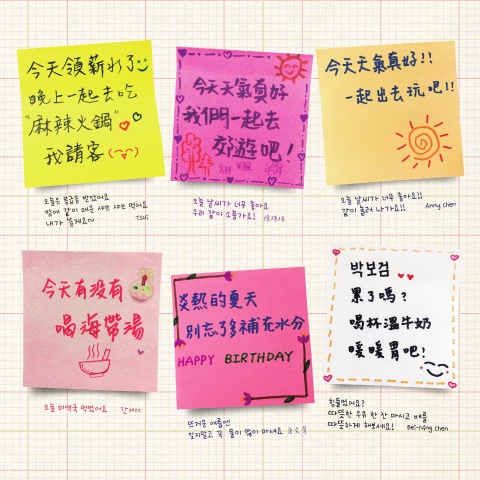 今天領薪水了
晚上一起去吃
"麻辣火鍋"
我請客
오늘은 봉급을 받았어요
밤에 같이 매운 샤브샤브 먹어요
내가 쏠게요~
今天天氣真好
我們一起去
郊遊吧!
오늘 날씨가 너무 좋아요
우리 같이 소풍가요!
今天天氣真好!!
一起出去玩吧!!
오늘 날씨가 너무 좋아요!!
같이 놀러 나가요!!
Anny Chen
今天有沒有
喝海帶湯
오늘 미역국 먹었어요
炎熱的夏天
別忘了多補充水分
HAPPY BIRTHDAY
뜨거운 여름엔
잊지말고 꼭 물이 많이 마셔요
박보검
累了嗎?
喝杯溫牛奶
暖暖胃吧!
힘들었어요?
따뜻한 우유 한 잔 마시고 배를
따뜻하게 해보세요!
Bei-Ning Chen